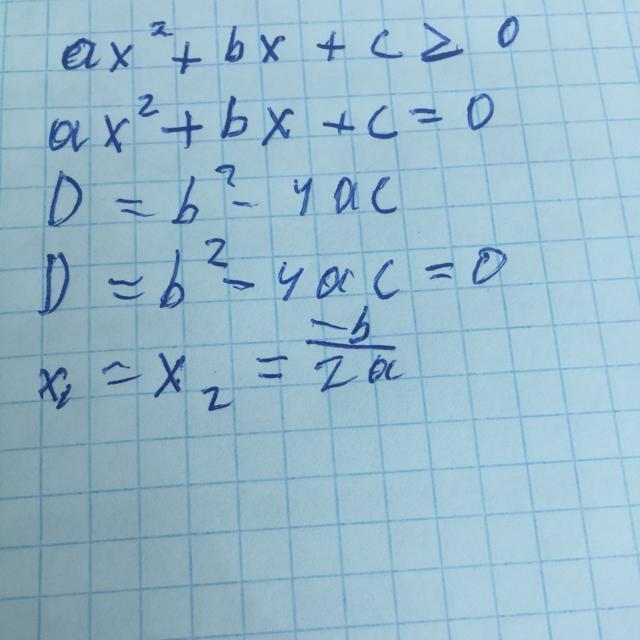 ax² + bx + c ≥ 0
ax² + bx + c = 0
D = b² - 4ac
D = b² - 4ac = 0
x₁ = x₂ = -b/2a